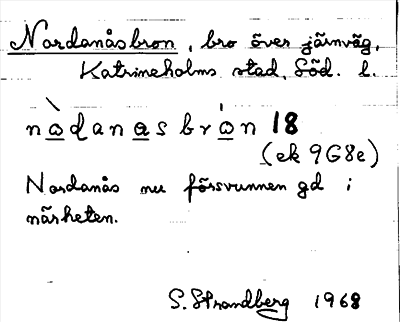 Nordanåsbron, bro över järnväg,
Katrineholms stad, Söd. l.
nòḍanasbrón 18
(ek 9G8e)
Nordanås nu försvunnen gd i
närheten.
S. Strandberg 1968